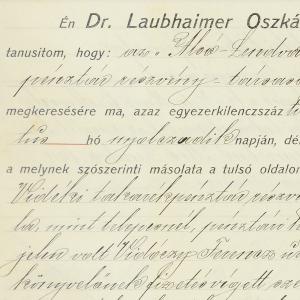 Én Dr. Laubhaimer Oszká
tanusitom, hogy: az "Alsó-Lendva
pénztár részvény-társasá
megkeresésére ma, azaz egyezerkilenczszáz
hó nyolczadik napján, dé
a melynek szószerinti másolata a tulsó oldalon
Vidéki takarékpénztár részv
la, mint telepesnél, pénztári h
jelen volt Vidóczy Ferencz ú
könyvelőnek fizetés végett